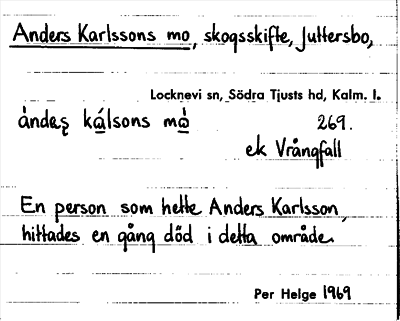 Anders Karlssons mo, skogsskifte, Juttersbo,
Locknevi sn, Södra Tjusts hd, Kalm. l.
ándaʂ kálsons mò 269.
ek Vrångfall
En person som hette Anders Karlsson,
hittades en gång död i detta område.
Per Helge 1969